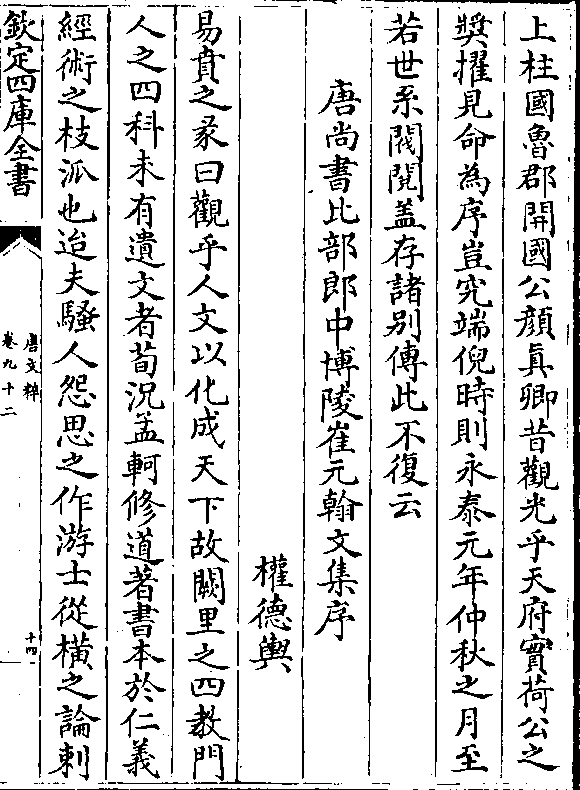 上柱國魯郡開國公顔真卿昔觀光乎天府實荷公之
奬擢見命為序豈究端倪時則永泰元年仲秋之月至
若世系閥閲盖存諸别傳此不復云
唐尚書比部郎中博陵崔元翰文集序
權德輿
易賁之彖曰觀乎人文以化成天下故闕里之四教門
人之四科未有遺文者荀況孟軻修道著書本於仁義
經術之枝泒也迨夫騷人怨思之作游士從横之論刺
欽定四庫全書
唐文粹
卷九十二
十四